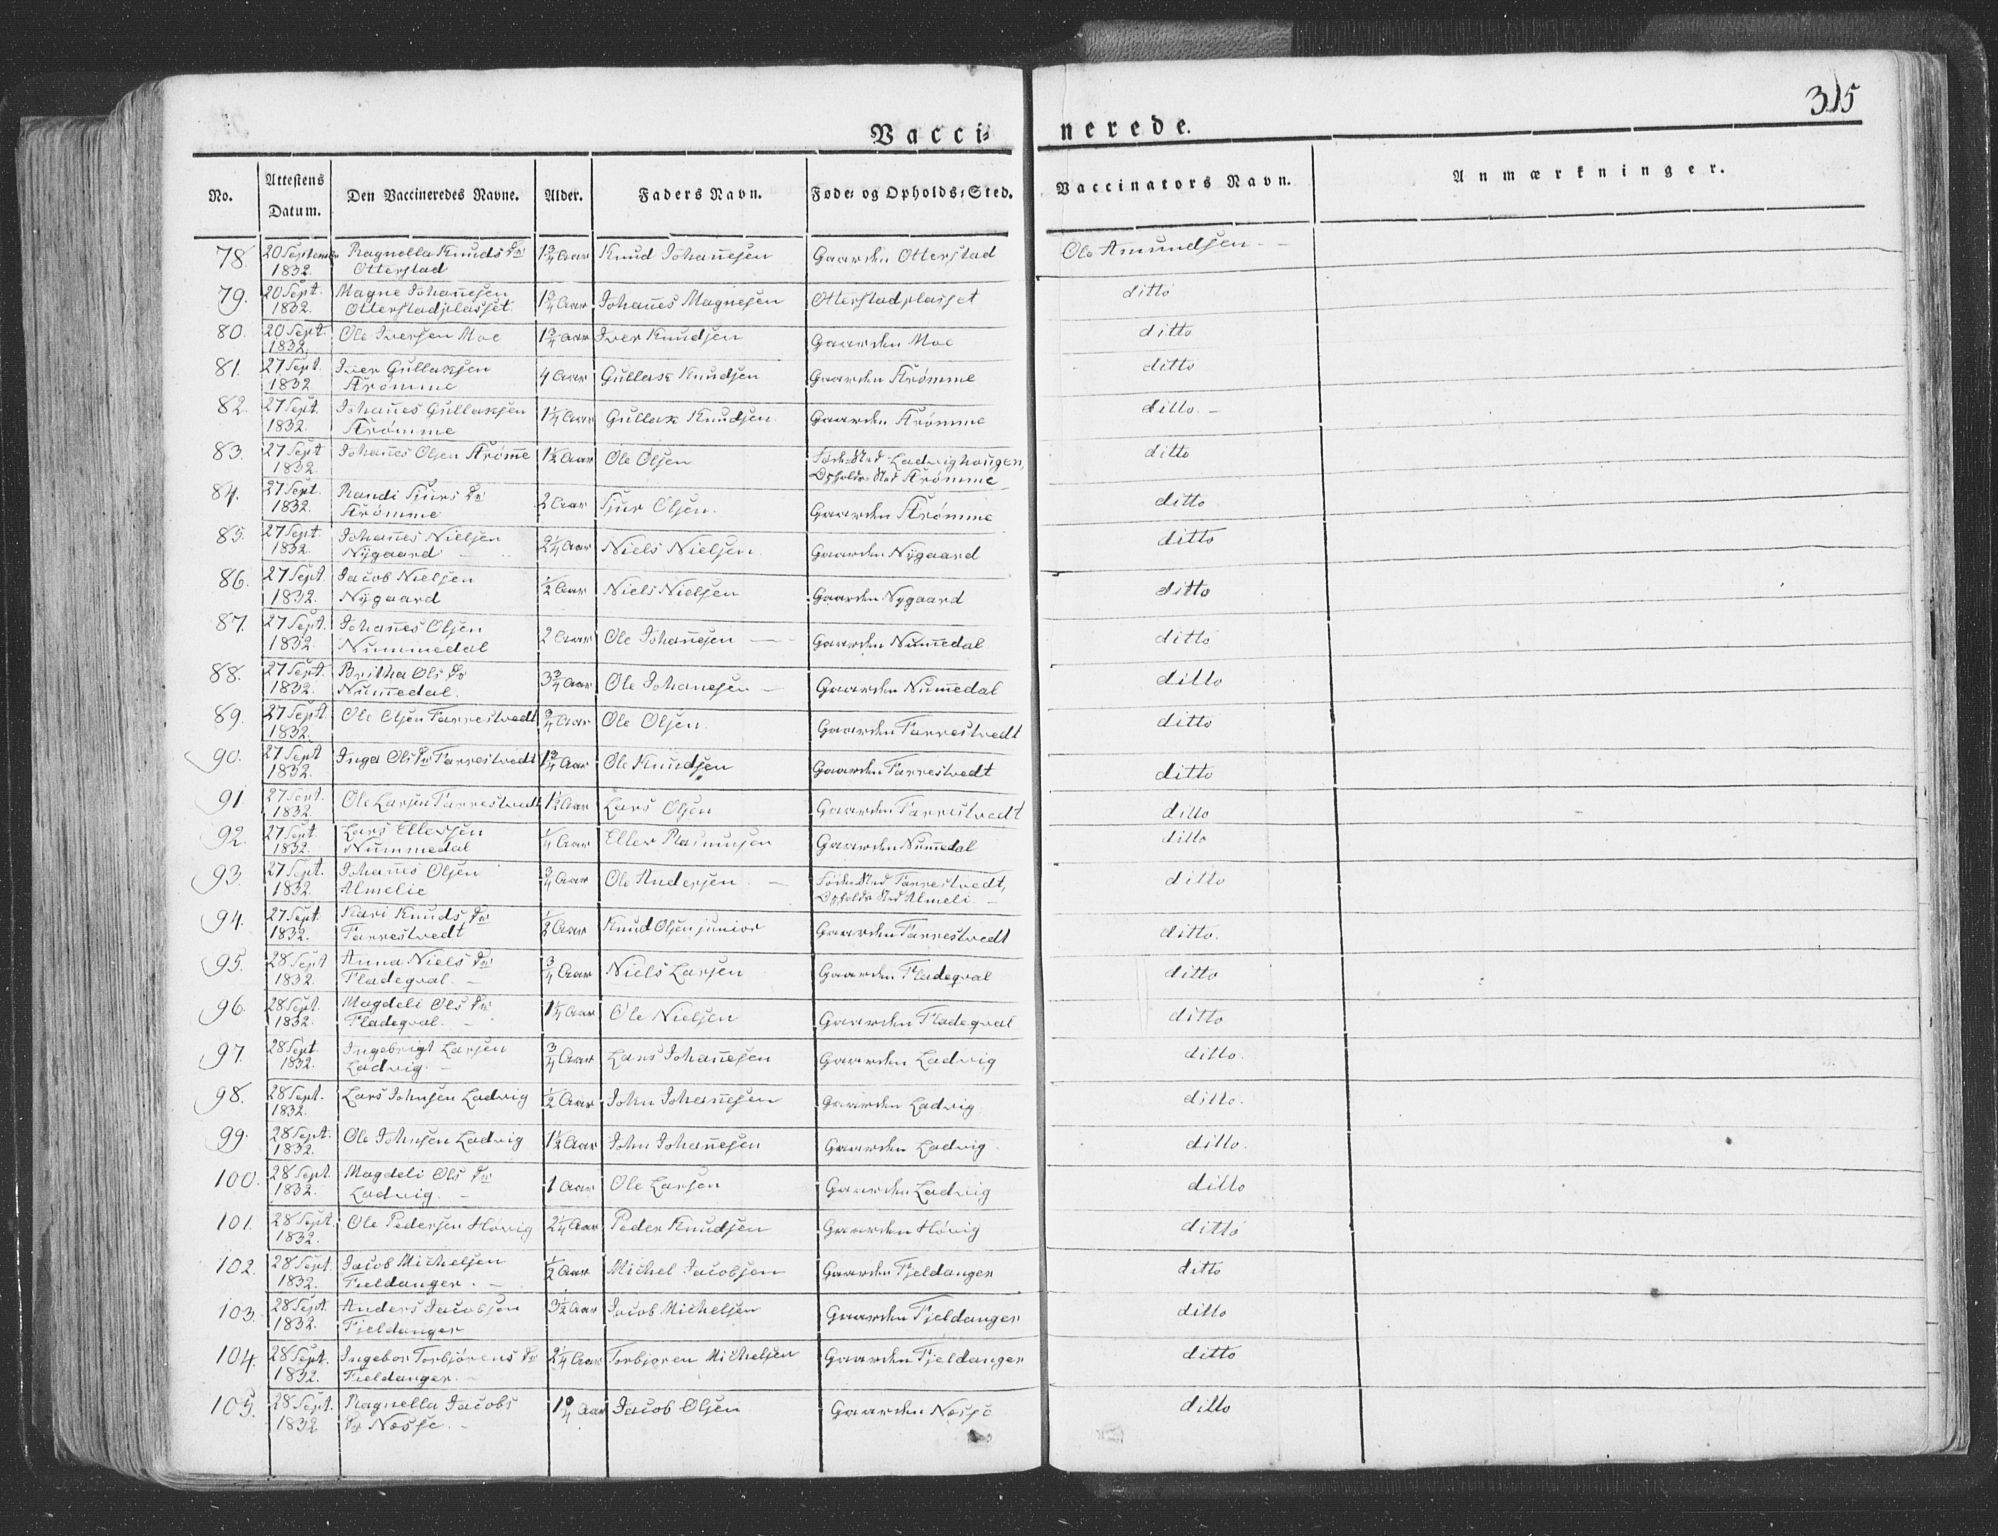 315
Vaccinerede.
No. Attestens Datum. Den Vaccineredes Navne. Alder. Faders Navn. Føde- og Opholds-Sted. Vaccinators Navn. Anmærkninger.
78. 20 September 1832. Ragnella Knuds Dr Otterstad 1 3/4 Aar Knud Johannesen Gaarden Otterstad Ole Amundsen
79. 20 Sept. 1832. Magne Johannesen Otterstadplasset. 1 3/4 Aar Johannes Magnesen Otterstadplasset ditto
80. 20 Sept. 1832. Ole Iversen Moe 1 3/4 Aar Iver Knudsen Gaarden Moe ditto
81. 27 Sept. 1832 Iver Gullaksen Strømme 4 Aar Gullak Knudsen Gaarden Strømme ditto
82. 27 Sept. 1832. Johannes Gullaksen Strømme 1 1/4 Aar Gullak Knudsen Gaarden Strømme ditto.
83. 27 Sept 1832. Johannes Olsen Strømme 1 1/2 Aar Ole Olsen Føde-Sted Ladvighougen, Opholds-Sted Strømme ditto
84. 27 Sept. 1832. Randi Siurs Dr Strømme 2 Aar Siur Olsen. Gaarden Strømme ditto
85. 27 Sept. 1832. Johannes Nielsen Nygaard 2 1/4 Aar Niels Nielsen. Gaarden Nygaard ditto
86. 27 Sept. 1832. Jacob Nielsen Nygaard 1/2 Aar Niels Nielsen Gaarden Nygaard ditto
87. 27 Sept. 1832. Johannes Olsen Nummedal 2 Aar Ole Johannesen Gaarden Nummedal ditto
88. 27 Sept. 1832. Britha Ols Dr Nummedal. 3 3/4 Aar Ole Johannesen Gaarden Nummedal ditto
89. 27 Sept 1832. Ole Olsen Farrestvedt 3/4 Aar Ole Olsen. Gaarden Farrestvedt ditto
90. 27 Sept 1832. Inga Ols Dr Farrestvedt 1 3/4 Aar Ole Knudsen Gaarden Farrestvedt ditto
91 27 Sept. 1832. Ole Larsen Farrestvedt 1 1/2 Aar Lars Olsen Gaarden Farrestvedt ditto
92. 27 Sept 1832. Lars Ellersen Nummedal 1/4 Aar Eller Rasmusen Gaarden Nummedal ditto
93. 27 Sept. 1832. Johannes Olsen Almelie 3/4 Aar Ole Andersen Føde-Sted Farrestvedt, Opholds Sted Almeli ditto
94. 27 Sept. 1832. Kari Knuds Dr Farrestvedt 1/2 Aar Knud Olsen junior Gaarden Farrestvedt ditto.
95. 28 Sept 1832. Anna Niels Dr Fladeqval. 3/4 Aar Niels Larsen Gaarden Fladeqval ditto
96. 28 Sept. 1832. Magdeli Ols Dr Fladeqval. 1 1/4 Aar Ole Nielsen Gaarden Fladeqval ditto
97. 28 Sept 1832. Ingebrigt Larsen Ladvig. 3/4 Aar Lars Johannesen Gaarden Ladvig ditto.
98. 28 Sept. 1832. Lars Johnsen Ladvig 1/2 Aar John Johannesen Gaarden Ladvig ditto.
99. 28 Sept. 1832. Ole Johnsen Ladvig 1 1/2 Aar John Johannesen Gaarden Ladvig. ditto.
100. 28 Sept 1832. Magdeli Ols Dr Ladvig. 1 Aar Ole Larsen Gaarden Ladvig ditto
101. 28 Sept. 1832. Ole Pedersen Høvig 2 1/4 Aar Peder Knudsen Gaarden Høvig ditto
102. 28 Sept. 1832. Jacob Michelsen Fieldanger. 1/2 Aar Michel Jacobsen Gaarden Fjeldanger ditto
103. 28 Sept 1832. Anders Jacobsen Fieldanger 3 1/2 Aar Jacob Michelsen Gaarden Fjeldanger ditto
104. 28 Sept. 1832. Ingebor Torbjørens Dr Fieldanger. 2 1/4 Aar Torbjøren Michelsen Gaarden Fjeldanger ditto
105. 28 Sept. 1832 Ragnella Jacobs Dr Næsse. Jacob Olsen Gaarden Næsse ditto